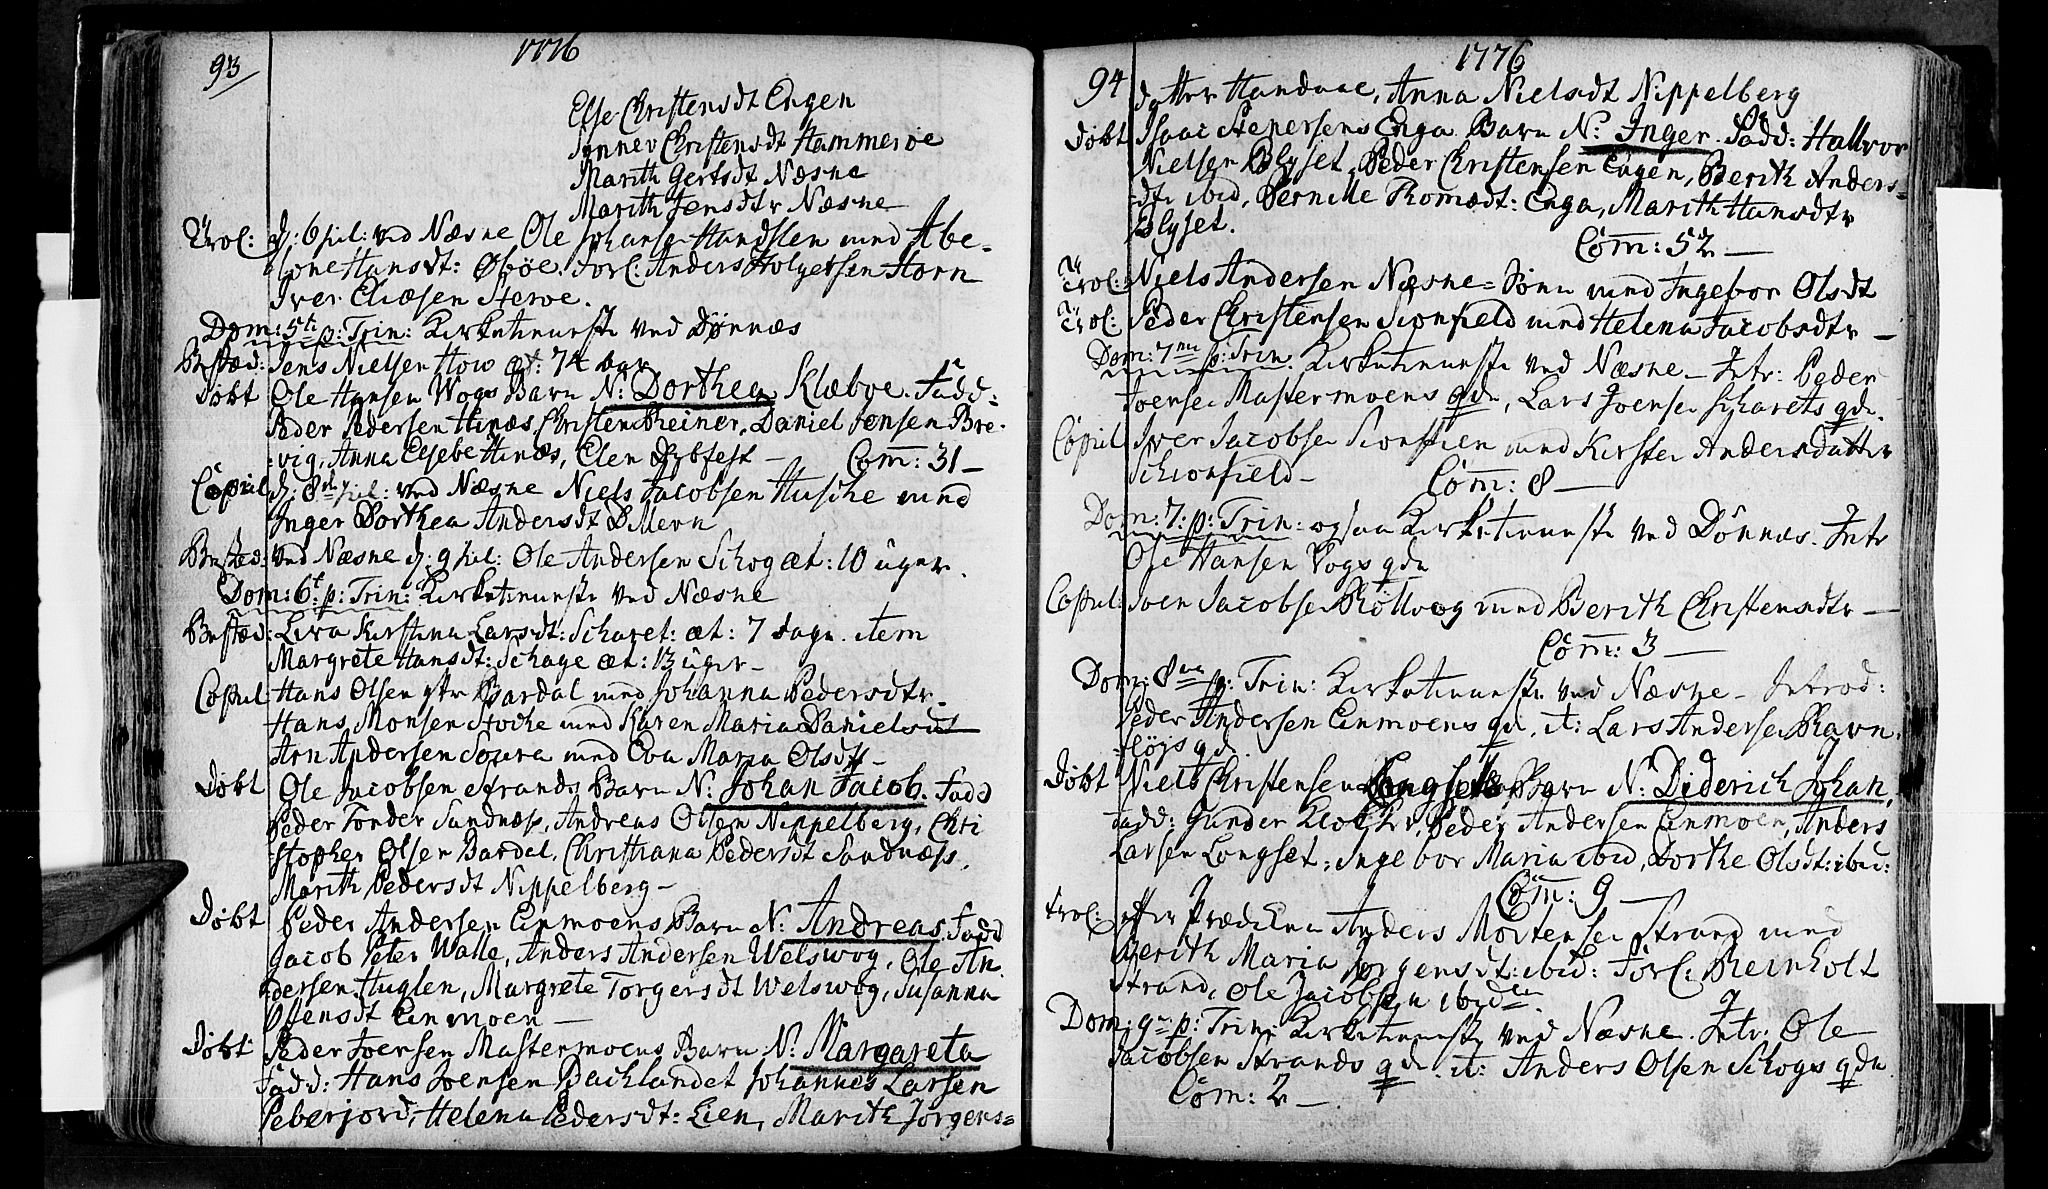 93
1776
Else Christensdt Engen
Sønnev Christensdt Hammerøe
Marith Gertsdt Næsne
Marith Jensdtr Næsne
Trol: d: 6 Jul: ved Næsne Ole Johansen Handsten med Abe-
lone Hansdt: Øbøe. Forl: Anders Holgersen Horn
Iver Eliæsen Sterve.
Dom: 5te p: Trin: Kirketieneste ved Dønnæs
Begræd: Jens Nielsen How æt: 74 aar
Døbt Ole Hansen Wogs Barn N: Dorthea Klæboe. Fadd:
Peder Pedersen Hinæs, Christen Reiner, Daniel Jensen Bre-
vig, Anna Elsebe Hinæs, Elen Dybfest — Com: 31 —
Copul d: 8de Jul: ved Næsne Niels Jacobsen Husche med
Inger Dorthea Andersdt
ved Næsne d: 9 Jul: Ole Andersen Schog æt: 10 uger.
Dom: 6t. p: Trin: Kirketieneste ved Næsne
Kirstina Larsdt: Scharet: æt: 7 dage. item
Margrete Hansdt: Schage æt: 13 uger —
Copul Hans Olsen Bardal med Johanna Pedersdtr.
Hans Monsen Stocke med Karen Maria Danielsdt
Arn Andersen Soura med Eva Maria Olsdt —
Døbt Ole Jacobsen Strands Barn N: Johan Jacob. Fadd
Peder Tonder Sundnæss, Andreas Olsen Nippelberg, Chri
stopher Olsen Bardal, Christiana Pedersdt Sandnæss,
Marith Pedersdt Nippelberg —
Døbt Peder Andersen Einmoens Barn N: Andreas. Fadd
Jacob Peter Walle, Anders Andersen Welswog, Ole An
dersen Huglen, Margrete Torgersdt Welswog, Susanna
Olsensdt Einmoen —
Døbt Peder Joensen Mastermoens Barn N: Margareta
Fadd: Hans Joensen Backlandet Johannes Larsen
Peberjord, Helena Pedersdt: Lien, Marith Jørgens=
94
1776
datter Handnae, Anna Nielsdt Nippelberg
Døbt Isaac Stepersens Enga Barn N: Inger. Fadd: Hallvor
Nielsen Blyset, Peder Christensen Engen, Berith Anders=
dtr ibid, Pernille Thomædt: Enga, Marith Hansdtr
Blyset.
Com: 52 —
Trol: Niels Andersen Næsne=Sønn med Ingebor Olsdt
Trol: Peder Christensen Sionfield med Helena Jacobsdtr —
Dom: 7me p: Trin. Kirketieneste ved Næsne — Intr: Peder
Joensen Mastermoens qde, Lars Joensen Scharets qde.
Copul Iver Jacobsen med Kirsten Andersdatter
Schionfield — Com: 8 —
Dom: 7: p: Trin: ogsaa Kirketieneste ved Dønnæs. Intr
Ole Hansen Vogs qde
Copul: Joen Jacobsen Røllvog med Berith Christensdtr —
Com: 3 —
Dom: 8ve p: Trin: Kirketieneste ved Næsne — Introd:
Peder Andersen Einmoens qd. it: Lars Andersen Ravn
fløjs qd.
Døbt Niels Christensen Longset Barn N: Diderich Johan,
Fadd: Gunder Klocker, Peder Andersen Einmoen, Anders
Larsen Longset, Ingebor Maria ibid, Dorthe Olsdt: ibid:
Com: 9 —
Trol: efter Prædiken Anders Mortensen Strand med
Berith Maria Jørgensdt: ibid: Forl: Reinholt
Strand, Ole Jacobsen ibidem
Dom: 9de p: Trin. Kirketieneste ved Næsne. Intr: Ole
Jacobsen Strands qd. it: Anders Olsen Schogs qde
Com: 2 —